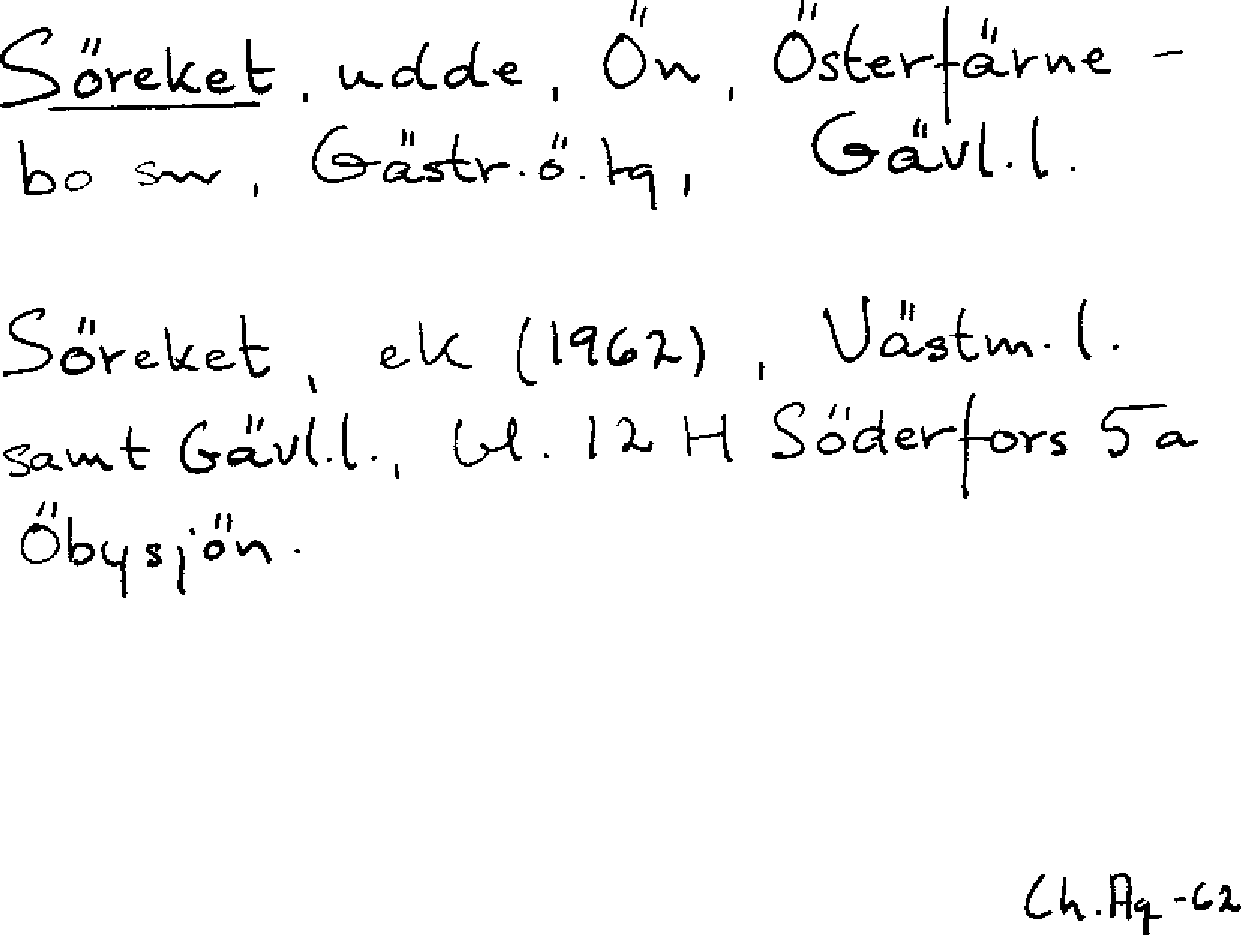 Söreket, udde, Ön, Österfärne-
bo sn, Gästr. ö. tg, Gävl. l.
Söreket, ek (1962), Västm. l.
samt Gävl. l., bl. 12 H Söderfors 5a
Öbysjön.
Ch. Ag -62